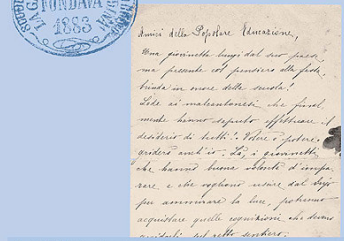 FONDAVA
1883
Amici della Popolare Educazione,
Una giovinetta lungi dal suo paese,
ma presente col pensiero alla festa
brinda in onore della scuola!
Lode ai
mente hanno saputo effettuare il
desiderio di tutti! Volere è potere
griderò anch'io. Là, i giovanetti
che hanno buona volontà d'impa
rare e che vogliono uscire dal buio
per ammirare la luce, potranno
acquistare quelle cognizioni che devono
guidarli sul retto sentiero.